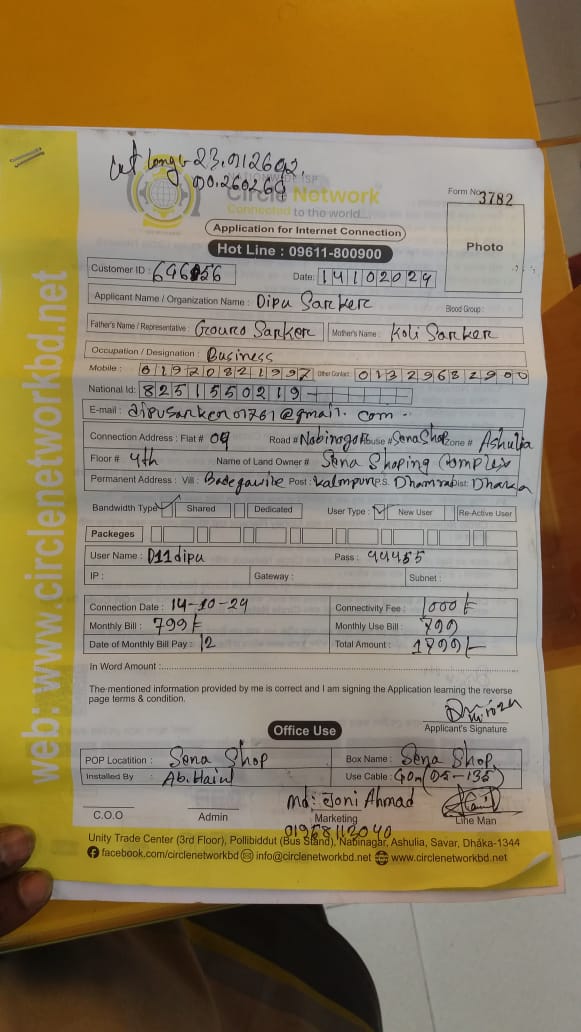 Lat long 23.912692.
90.260269
Circle Network
Connected to the world...
Form No: 3782
Application for Internet Connection
Hot Line : 09611-800900
Photo
Customer ID : 646
Date: 14102024
Applicant Name / Organization Name : Dipu Sarker
Blood Group :
Father's Name / Representative : Gouro Sarker Mother's Name : Koli Sarker
Occupation / Designation : Business
Mobile : 01920821997 Other Contact : 01329682900
National Id: 8251550219
E-mail : dipusarker01761@gmail.com.
Connection Address : Flat # 09 Road # Nabinogor House # SenaShop Zone # Ashulia
Floor # 4th Name of Land Owner # Sena Shoping Complex
Permanent Address : Vill : Post : Kalmpur P.S. Dhamrai Dist: Dhaka
Bandwidth Type Shared Dedicated User Type : New User Re-Active User
Packeges
User Name : D11dipu Pass : 44455
IP : Gateway : Subnet :
Connection Date : 14-10-24 Connectivity Fee : 1000/-
Monthly Bill : 799/- Monthly Use Bill : 799
Date of Monthly Bill Pay : 12 Total Amount : 1799/-
In Word Amount :
The mentioned information provided by me is correct and I am signing the Application learning the reverse
page terms & condition.
Applicant's Signature
Office Use
POP Locatition : Sena Shop Box Name : Sena Shop.
Installed By Use Cable : 40m (05-135)
md: Joni Ahmad
C.O.O Admin Marketing Line Man
01968112040
Unity Trade Center (3rd Floor), Pollibiddut (Bus Stand), Nabinagar, Ashulia, Savar, Dhaka-1344
facebook.com/circlenetworkbd info@circlenetworkbd.net www.circlenetworkbd.net
web: www.circlenetworkbd.net